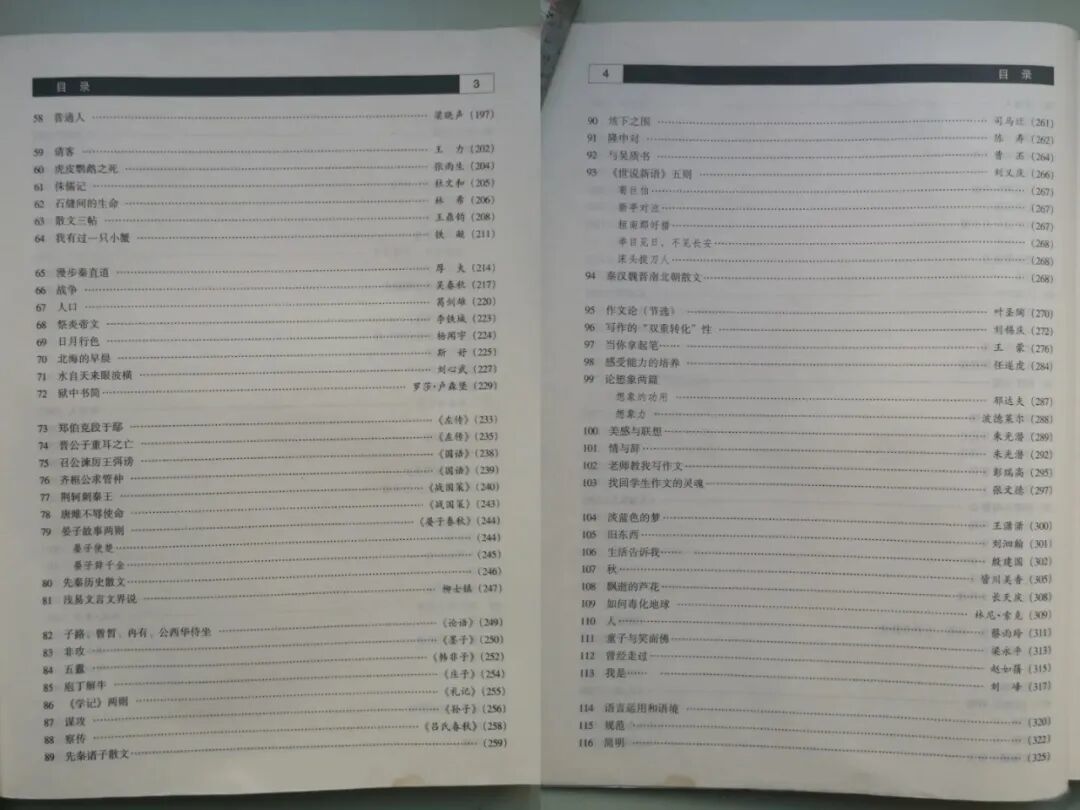 目 录 3
58 普通人 梁晓声 (197)
59 请客 王 力 (202)
60 虎皮鹦鹉之死 张雨生 (204)
61 侏儒记 杜文和 (205)
62 石缝间的生命 林 希 (206)
63 散文三帖 王鼎钧 (208)
64 我有过一只小蟹 铁 凝 (211)
65 漫步秦直道 厚 夫 (214)
66 战争 吴春秋 (217)
67 人口 葛剑雄 (220)
68 祭炎帝文 李铁城 (223)
69 日月行色 杨闻宇 (224)
70 北海的早晨 斯 妤 (225)
71 水自天来眼波横 刘心武 (227)
72 狱中书简 罗莎·卢森堡 (229)
73 郑伯克段于鄢 《左传》(233)
74 晋公子重耳之亡 《左传》(235)
75 召公谏厉王弭谤 《国语》(238)
76 齐桓公求管仲 《国语》(239)
77 荆轲刺秦王 《战国策》(240)
78 唐雎不辱使命 《战国策》(243)
79 晏子故事两则 《晏子春秋》(244)
晏子使楚 (244)
晏子辞千金 (245)
80 先秦历史散文 (246)
81 浅易文言文界说 柳士镇 (247)
82 子路、曾皙、冉有、公西华侍坐 《论语》(249)
83 非攻 《墨子》(250)
84 五蠹 《韩非子》(252)
85 庖丁解牛 《庄子》(254)
86 《学记》两则 《礼记》(255)
87 谋攻 《孙子》(256)
88 察传 《吕氏春秋》(258)
89 先秦诸子散文 (259)
4 目 录
90 垓下之围 司马迁 (261)
91 隆中对 陈 寿 (262)
92 与吴质书 曹 丕 (264)
93 《世说新语》五则 刘义庆 (266)
荀巨伯 (267)
新亭对泣 (267)
桓南郡好猎 (267)
举目见日，不见长安 (268)
床头捉刀人 (268)
94 秦汉魏晋南北朝散文 (268)
95 作文论（节选） 叶圣陶 (270)
96 写作的“双重转化”性 刘锡庆 (272)
97 当你拿起笔…… 王 蒙 (276)
98 感受能力的培养 任遂虎 (284)
99 论想象两篇
想象的功用 郁达夫 (287)
想象力 波德莱尔 (288)
100 美感与联想 朱光潜 (289)
101 情与辞 朱光潜 (292)
102 老师教我写作文 彭瑞高 (295)
103 找回学生作文的灵魂 张文德 (297)
104 淡蓝色的梦 王潇潇 (300)
105 旧东西 刘泗翰 (301)
106 生活告诉我…… 殷建国 (302)
107 秋 皆川美香 (305)
108 飘逝的芦花 长天庆 (308)
109 如何毒化地球 林尼·索克 (309)
110 人 蔡雨玲 (311)
111 童子与笑面佛 梁永平 (313)
112 曾经走过 赵如蒨 (315)
113 我是…… 刘 峰 (317)
114 语言运用和语境 (320)
115 规范 (322)
116 简明 (325)